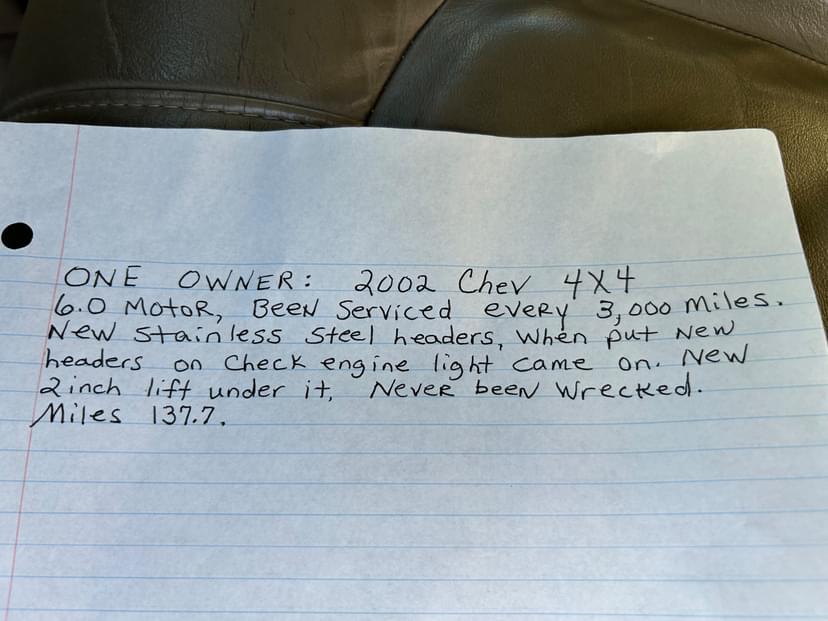 ONE OWNER: 2002 Chev 4X4
6.0 MOTOR, BEEN Serviced EVERY 3,000 Miles.
New Stainless Steel headers, When put New
headers on Check engine light came on. New
2inch lift under it, NEVER been Wrecked.
Miles 137.7.